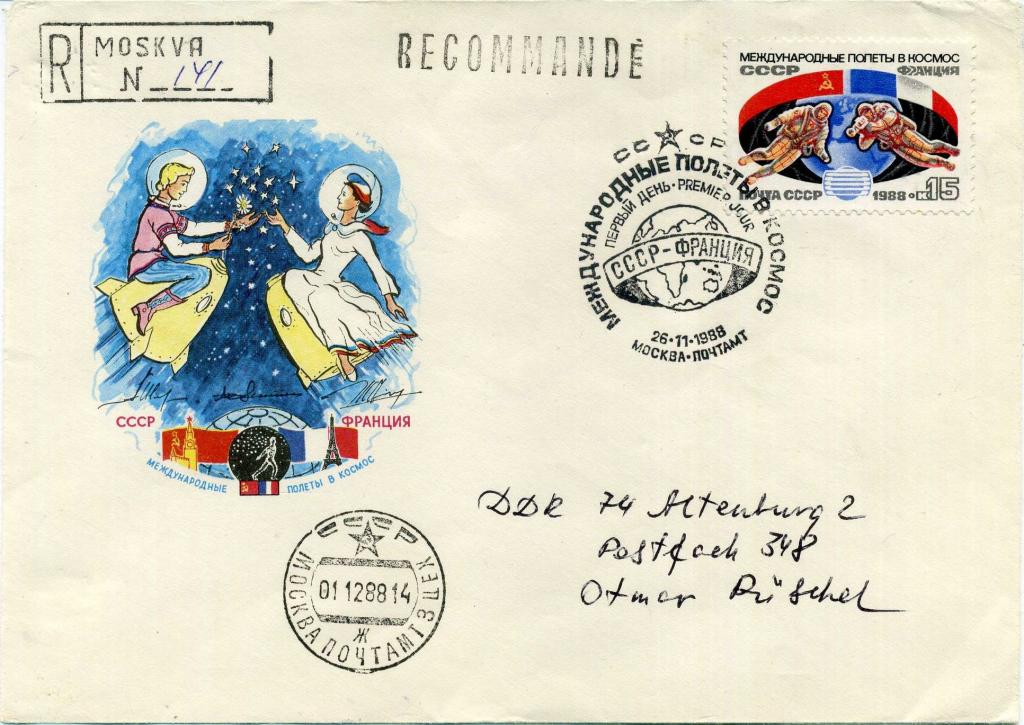 R MOSKVA
N 141
RECOMMANDÉ
МЕЖДУНАРОДНЫЕ ПОЛЕТЫ В КОСМОС
СССР ФРАНЦИЯ
ПОЧТА СССР 1988 15к
СССР
МЕЖДУНАРОДНЫЕ ПОЛЕТЫ В КОСМОС
ПЕРВЫЙ ДЕНЬ · PREMIER JOUR
СССР-ФРАНЦИЯ
26·11·1988
МОСКВА·ПОЧТАМТ
СССР ФРАНЦИЯ
МЕЖДУНАРОДНЫЕ ПОЛЕТЫ В КОСМОС
DDR 74 Altenburg 2
Postfach 348
Otmar Püschel
СССР
01 12 88 14
Ж
МОСКВА ПОЧТАМТ ЗЦЕХ